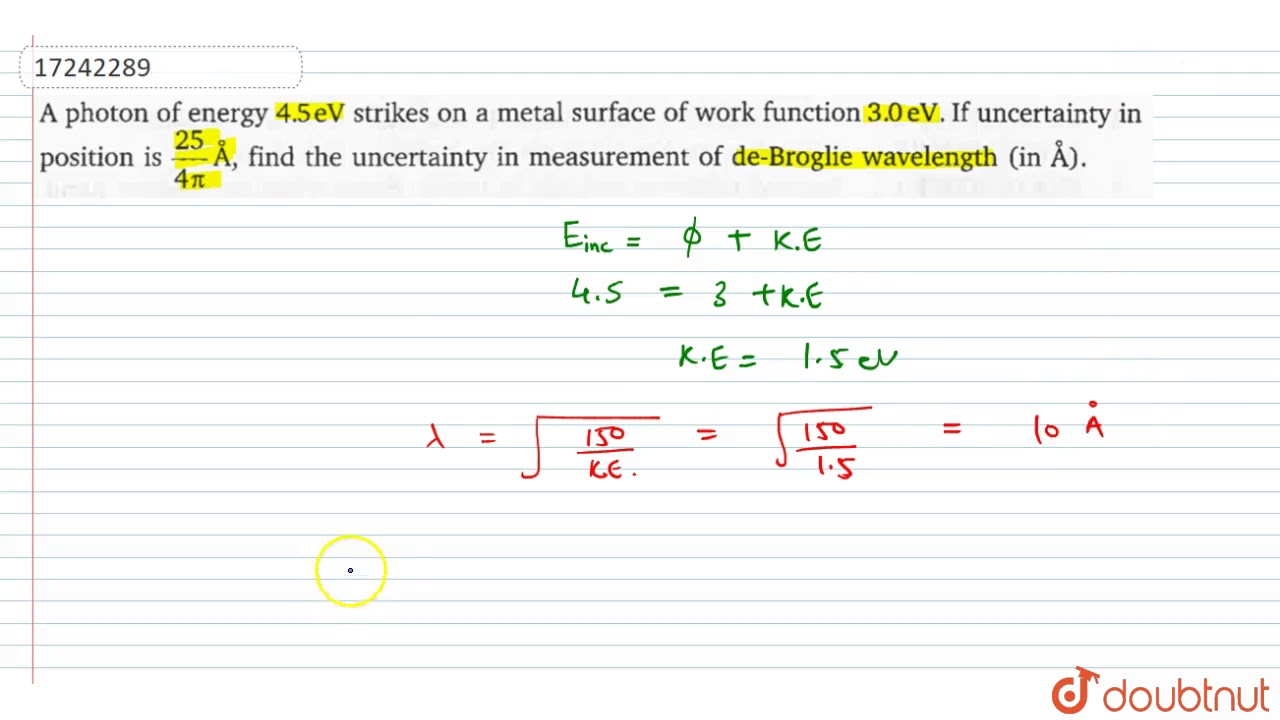 17242289
A photon of energy 4.5 eV strikes on a metal surface of work function 3.0 eV. If uncertainty in
position is 25/4π Å, find the uncertainty in measurement of de-Broglie wavelength (in Å).
Einc = ϕ + K.E
4.5 = 3 + K.E
K.E = 1.5 eV
λ = √(150/K.E.) = √(150/1.5) = 10 Å
doubtnut